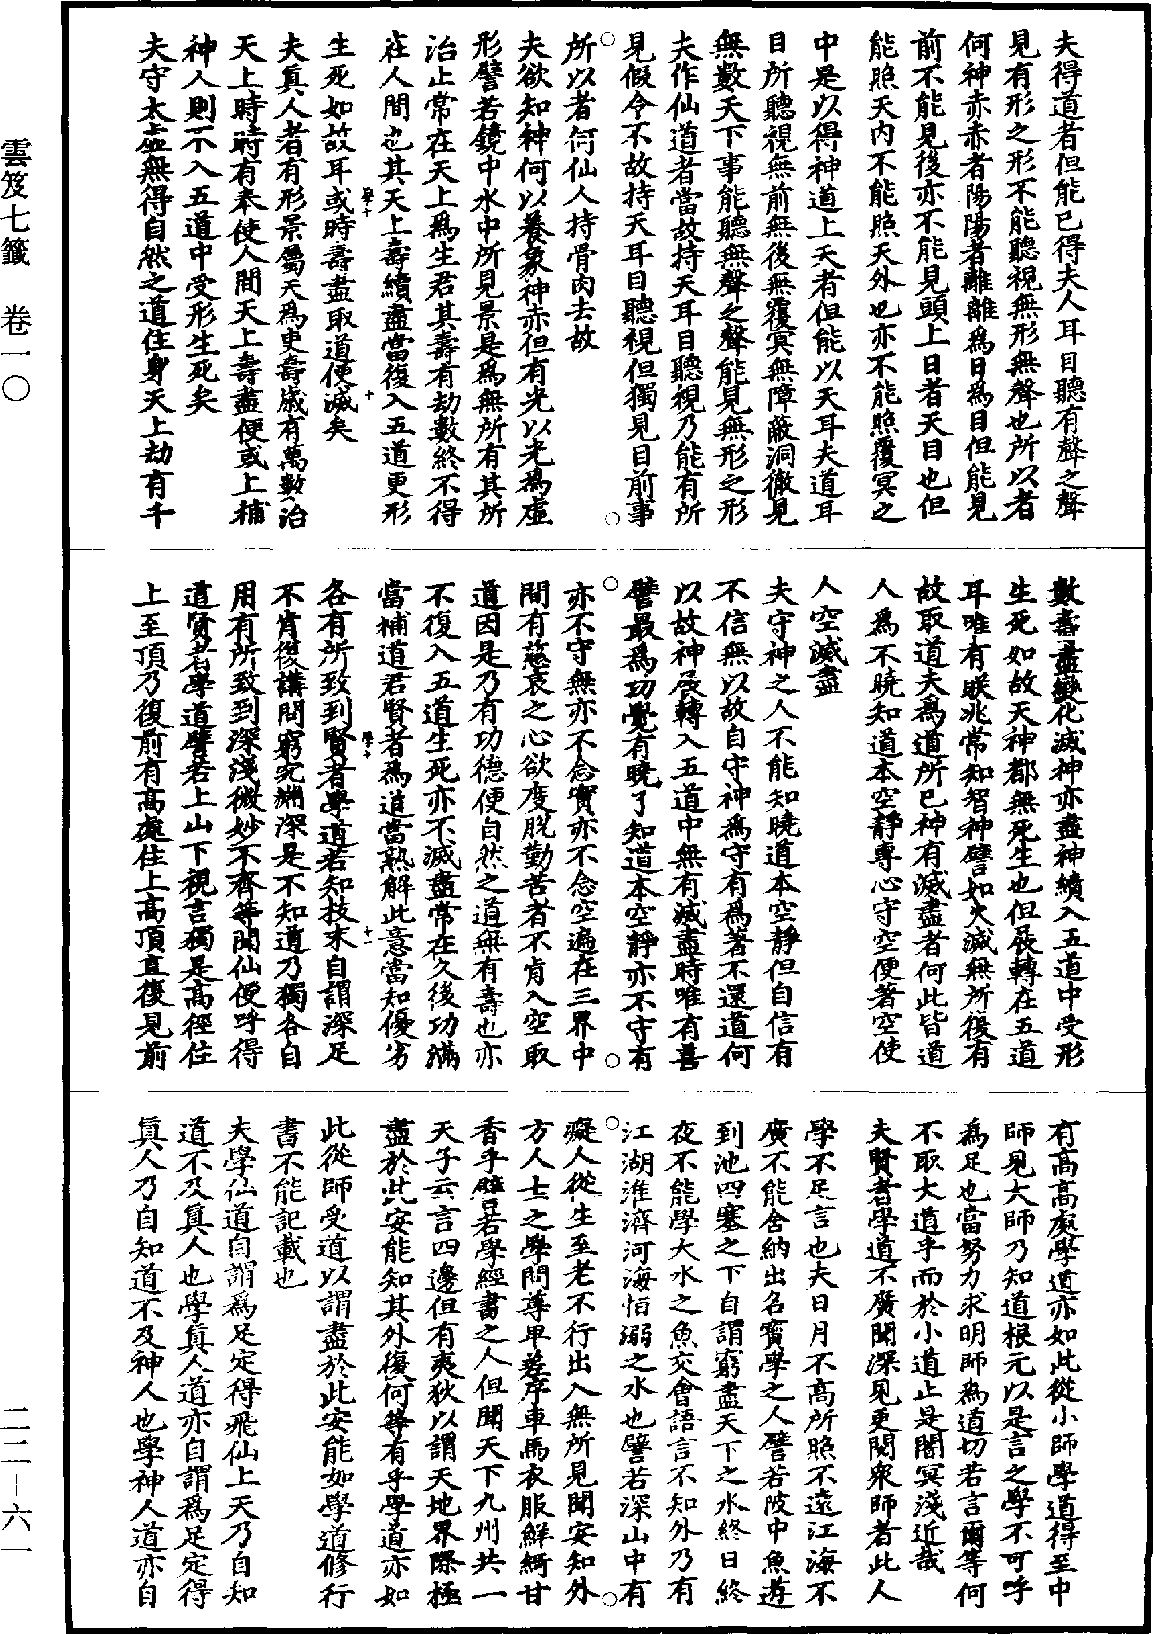 雲笈七籤　卷一〇
二二－六一
夫得道者但能已得夫人耳目聽有聲之聲
見有形之形不能聽視無形無聲也所以者
何神赤赤者陽陽者離離爲日爲目但能見
前不能見後亦不能見頭上日者天目也但
能照天內不能照天外也亦不能照覆冥之
中是以得神道上天者但能以天耳夫道耳
目所聽視無前無後無覆冥無障蔽洞徹見
無數天下事能聽無聲之聲能見無形之形
夫作仙道者當故持天耳目聽視乃能有所
見假令不故持天耳目聽視但獨見目前事
所以者何仙人持骨肉去故
夫欲知神何以養象神赤但有光以光爲虛
形譬若鏡中水中所見景是爲無所有其所
治止常在天上爲生君其壽有劫數終不得
在人間也其天上壽續盡當復入五道更形
學十
十
生死如故耳或時壽盡取道便滅矣
夫真人者有形景屬天爲吏壽歲有萬數治
天上時時有奉使人間天上壽盡便或上補
神人則不入五道中受形生死矣
夫守太虛無得自然之道住身天上劫有千
數壽盡變化滅神亦盡神續入五道中受形
生死如故天神都無死生也但展轉在五道
耳唯有眹兆常知智神譬如火滅無所復有
故取道夫爲道所已神有滅盡者何此皆道
人爲不曉知道本空靜專心守空便著空使
人空滅盡
夫守神之人不能知曉道本空靜但自信有
不信無以故自守神爲守有爲著不還道何
以故神展轉入五道中無有滅盡時唯有善
譬最爲功覺有曉了知道本空靜亦不守有
亦不守無亦不念實亦不念空遍在三界中
間有慈哀之心欲度脫勤苦者不肯入空取
道因是乃有功德便自然之道無有壽也亦
不復入五道生死亦不滅盡常在久後功滿
當補道君賢者爲道當熟解此意當知優劣
學十
十一
各有所致到賢者學道若知技末自謂深足
不肯復講問窮究淵深是不知道乃獨各自
用有所致到深淺微妙不齊等聞仙便呼得
道賢者學道譬若上山下視言獨是高徑住
上至頂乃復前有高處住上高頂直復見前
有高高處學道亦如此從小師學道得至中
師見大師乃知道根元以是言之學不可呼
爲足也當努力求明師爲道切若言爾等何
不取大道乎而於小道止是闇冥淺近哉
夫賢者學道不廣聞深見更閱衆師者此人
學不足言也夫日月不高所照不遠江海不
廣不能舍納出名寶學之人譬若陂中魚遊
到池四塞之下自謂窮盡天下之水終日終
夜不能學大水之魚交會語言不知外乃有
江湖淮濟河海怕溺之水也譬若深山中有
癡人從生至老不行出入無所見聞安知外
方人士之學問尊卑差序車馬衣服鮮綺甘
香乎譬若學經書之人但聞天下九州共一
天子云言四邊但有夷狄以謂天地界際極
盡於此安能知其外復何等有乎學道亦如
此從師受道以謂盡於此安能如學道修行
書不能記載也
夫學仙道自謂爲足定得飛仙上天乃自知
道不及真人也學真人道亦自謂爲足定得
真人乃自知道不及神人也學神人道亦自